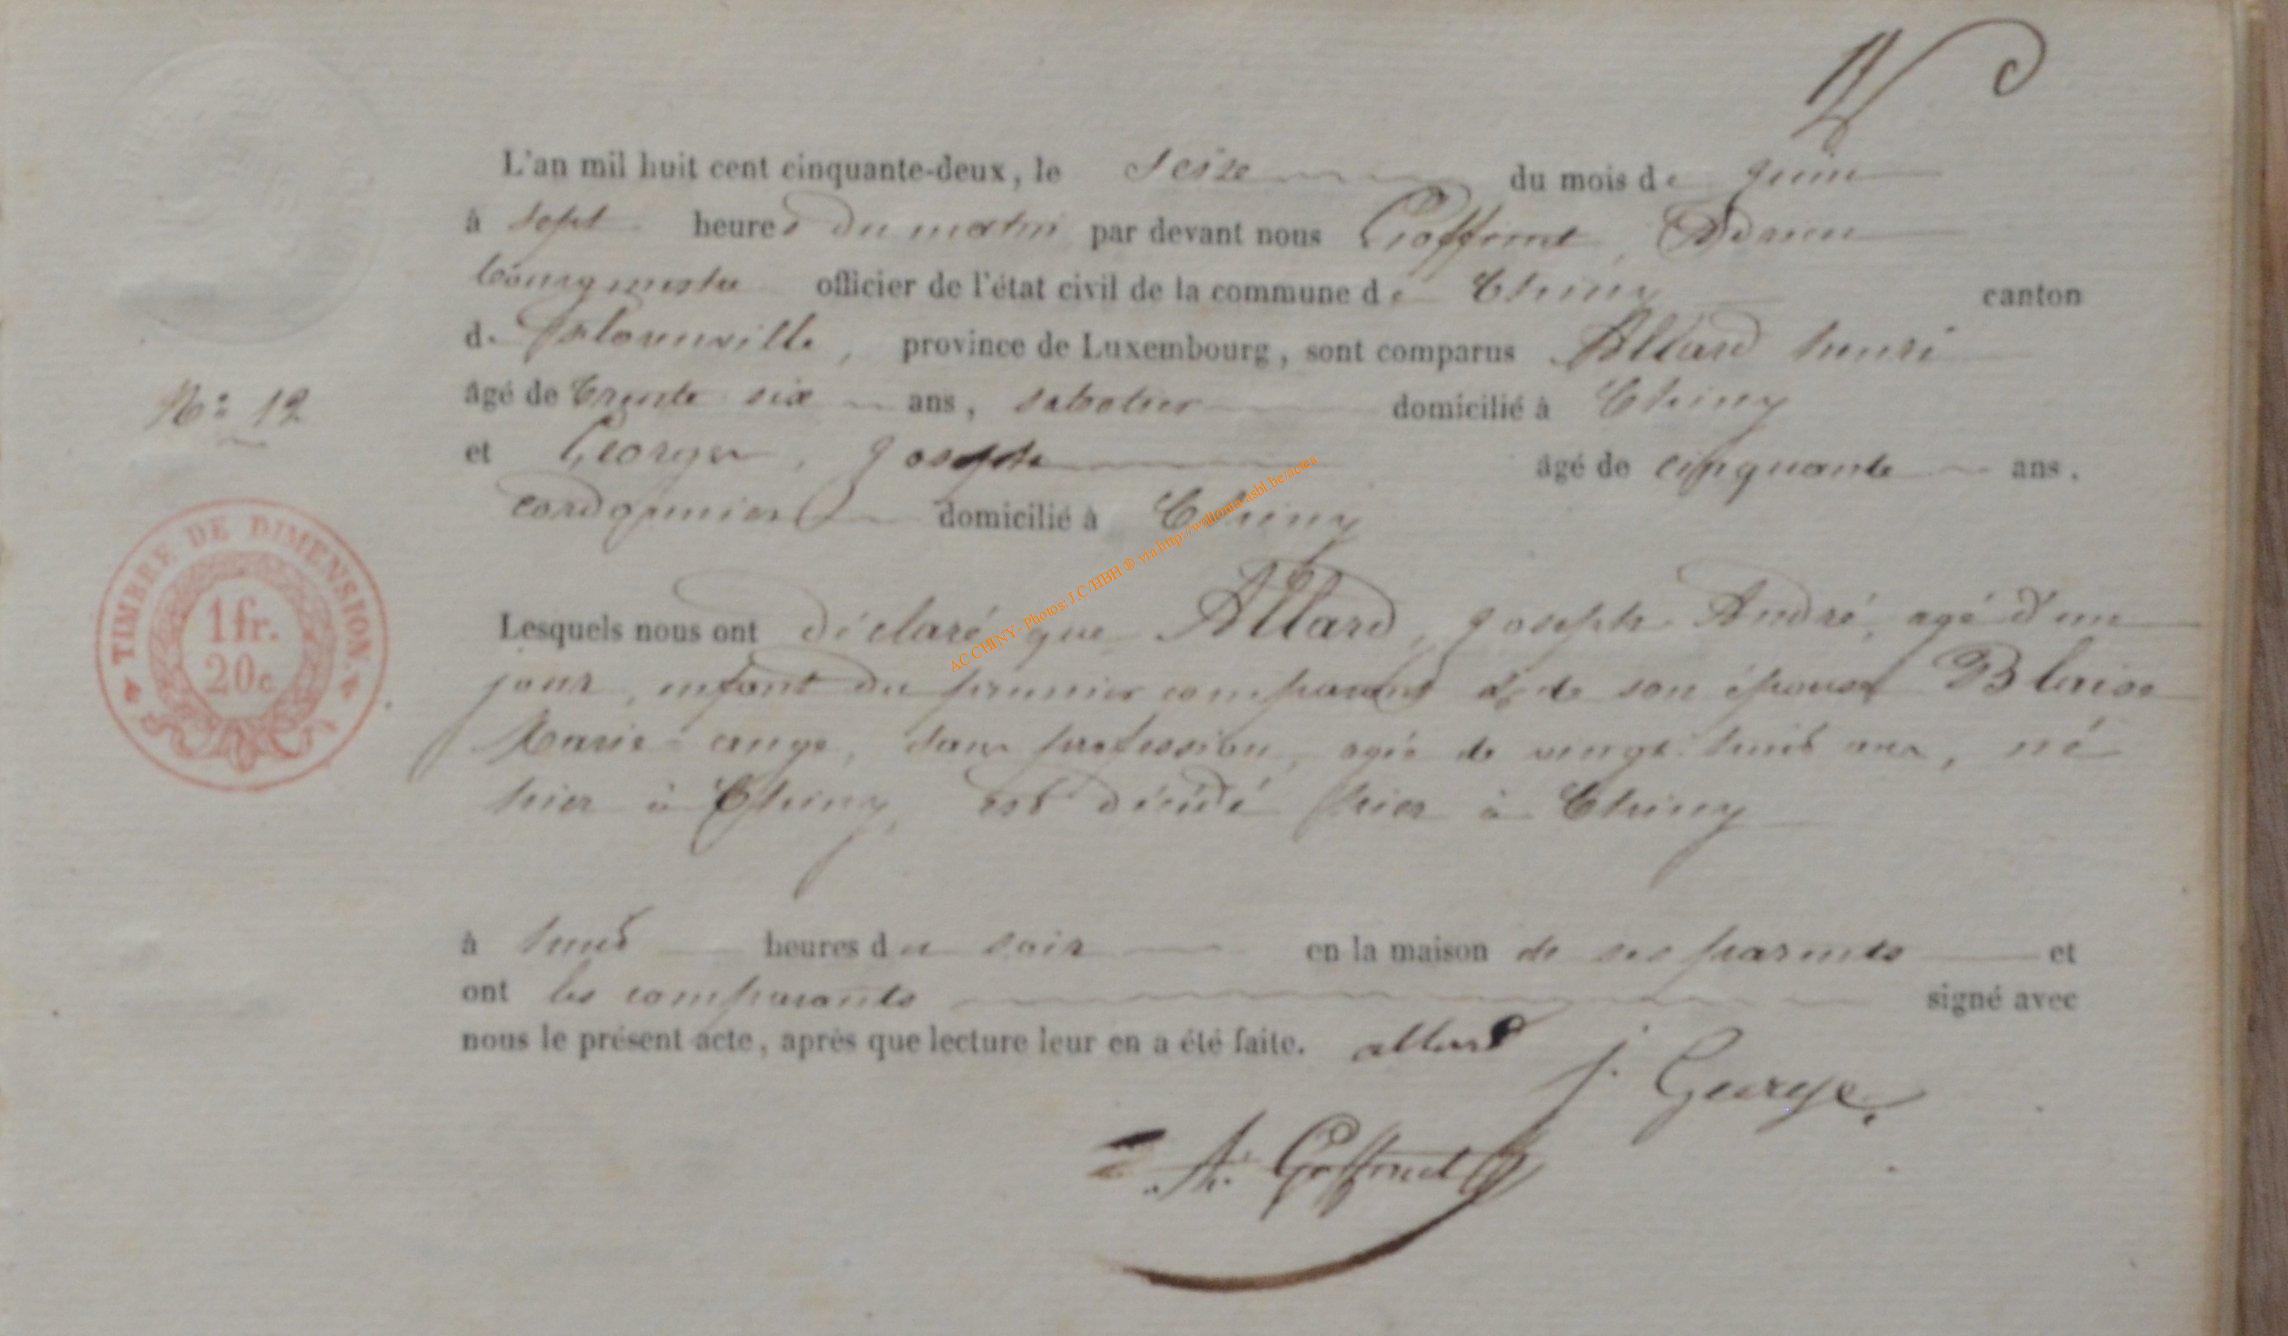 L'an mil huit cent cinquante-deux, le seize du mois de juin
à sept heures du matin par devant nous Goffinet, Adrien
bourgmestre officier de l'état civil de la commune de Chiny canton
de Florenville, province de Luxembourg, sont comparus Allard henri
N° 12
âgé de trente six ans, sabotier domicilié à Chiny
et Georges, Joseph âgé de cinquante ans.
cordonnier domicilié à Chiny
TIMBRE DE DIMENSION.
1 fr.
20c
AC CHINY - Photos: J.C/HBH ® via http://wallonia-asbl.be/actes
Lesquels nous ont déclaré que Allard, Joseph André, agé d'un
jour, enfant du premier comparant & de son épouse Blaise
Marie-ange, sans profession, agée de vingt huit ans, né
hier à Chiny, est décédé hier à Chiny
à huit heures du soir en la maison de ses parents et
ont les comparants signé avec
nous le présent acte, après que lecture leur en a été faite. allard
j. George
A. Goffinet